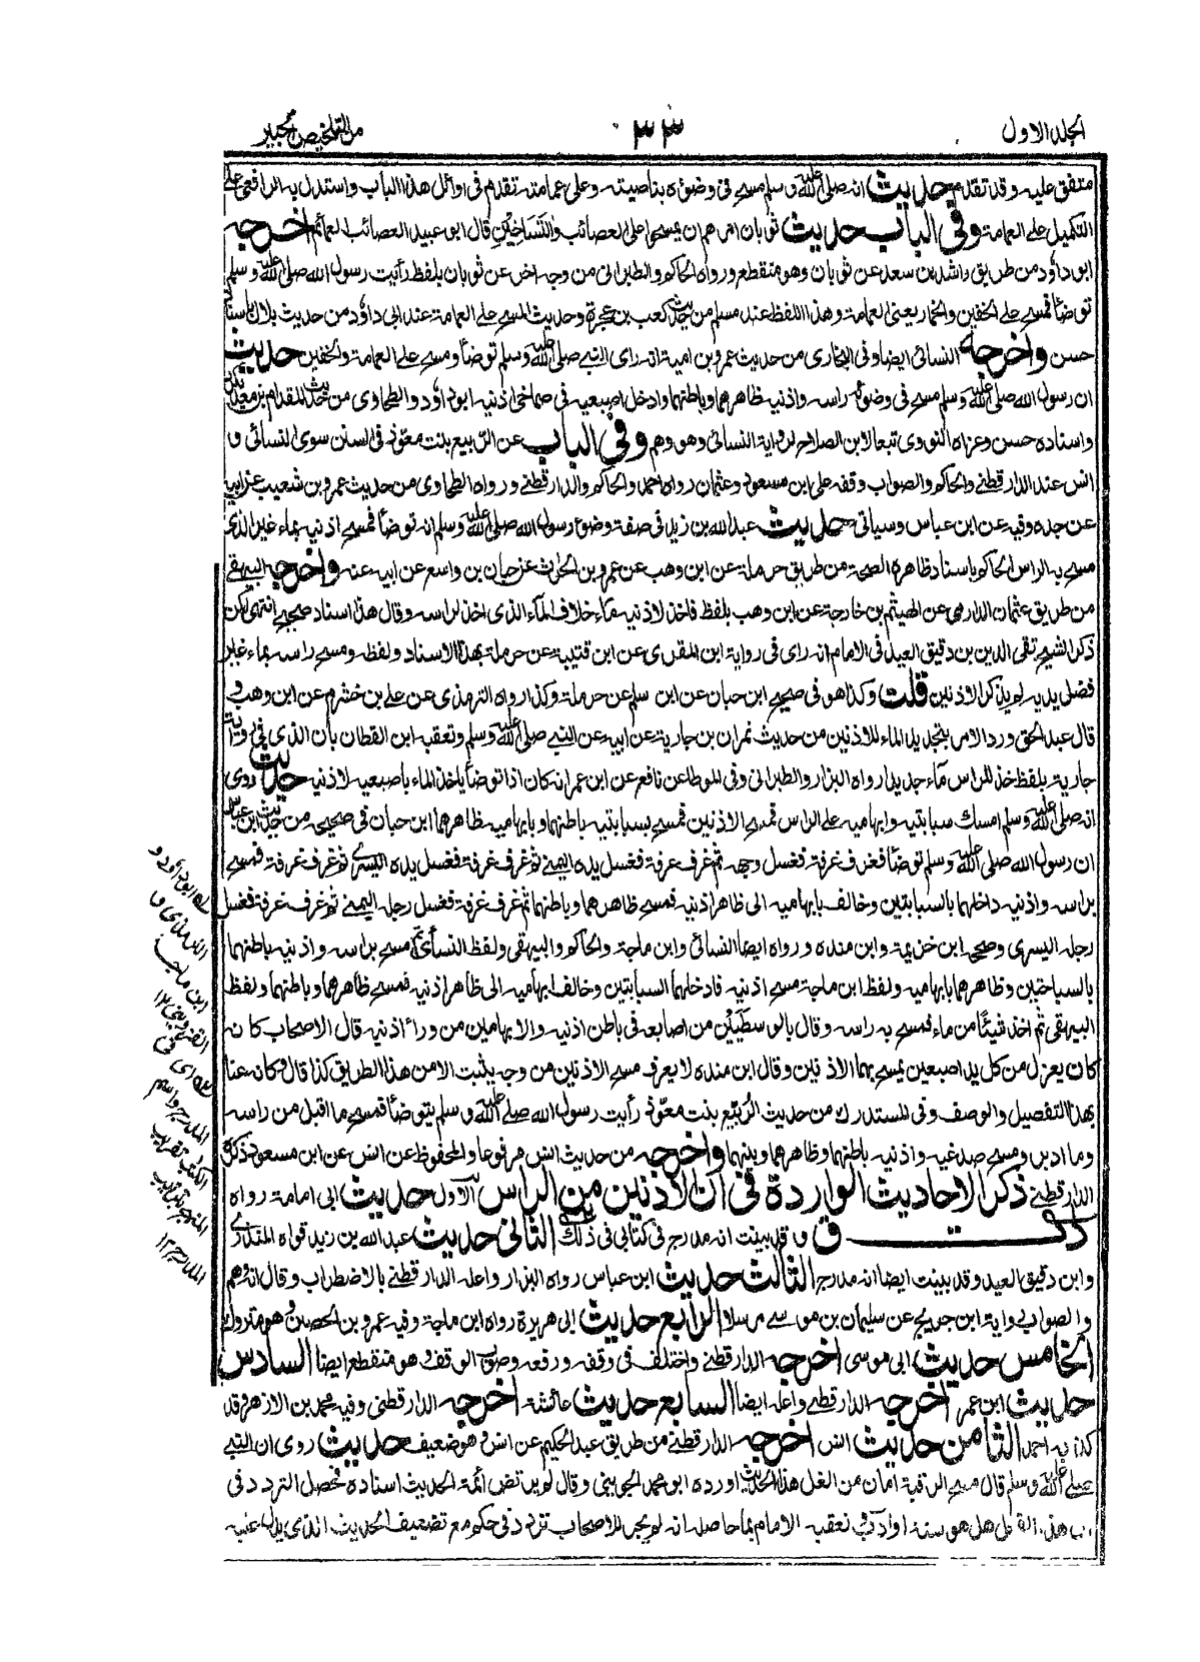 الجلد الاول
٣٣
من التلخيص الحبير
متفق عليه وقد تقدم حديث انه صلى الله عليه وسلم مسح في وضوءه بناصيته وعلى عمامته تقدم في اوائل هذا الباب واستدل به الرافعي على
التكميل على العمامة وفي الباب حديث ثوبان امرهم ان يمسحوا على العصائب والتساخين قال ابو عبيد العصائب العمائم اخرجه
ابو داود من طريق راشد بن سعد عن ثوبان وهو منقطع ورواه الحاكم والطبراني من وجه اخر عن ثوبان بلفظ رأيت رسول الله صلى الله عليه وسلم
توضأ فمسح على الخفين والخمار يعني العمامة وهذا اللفظ عند مسلم من حديث كعب بن عجرة وحديث المسح على العمامة عند ابي داود من حديث بلال باسناد
حسن واخرجه النسائي ايضا وفي البخاري من حديث عمرو بن امية انه راى النبي صلى الله عليه وسلم توضأ ومسح على العمامة والخفين حديث
ان رسول الله صلى الله عليه وسلم مسح في وضوئه راسه واذنيه ظاهرهما وباطنهما وادخل اصبعيه في صماخي اذنيه ابو داود والطحاوي من حديث المقدام بن معديكرب
واسناده حسن وعزاه النووي تبعا لابن الصلاح لرواية النسائي وهو وهم وفي الباب عن الربيع بنت معوذ في السنن سوى النسائي و
انس عند الدارقطني والحاكم والصواب وقفه على ابن مسعود وعثمان رواه احمد والحاكم والدارقطني ورواه الطحاوي من حديث عمرو بن شعيب عن ابيه
عن جده وفيه عن ابن عباس وسياتي حديث عبد الله بن زيد في صفة وضوء رسول الله صلى الله عليه وسلم انه توضأ فمسح اذنيه بماء غير الذي
مسح به الراس الحاكم باسناد ظاهره الصحة من طريق حرملة عن ابن وهب عن عمرو بن الحارث عن حبان بن واسع عن ابيه عنه واخرجه البيهقي
من طريق عثمان الدارمي عن الهيثم بن خارجة عن ابن وهب بلفظ فاخذ لاذنيه ماء خلاف الماء الذي اخذ لراسه وقال هذا اسناد صحيح انتهى لكن
ذكر الشيخ تقي الدين بن دقيق العيد في الامام انه راى في رواية ابن المقري عن ابن قتيبة عن حرملة بهذا الاسناد ولفظه ومسح راسه بماء غير
فضل يديه لم يذكر الاذنين قلت وكذا هو في صحيح ابن حبان عن ابن سلم عن حرملة وكذا رواه الترمذي عن علي بن خشرم عن ابن وهب و
قال عبد الحق ورد الامر بتجديد الماء للاذنين من حديث نمران بن جارية عن ابيه عن النبي صلى الله عليه وسلم وتعقبه ابن القطان بان الذي في رواية
جارية بلفظ خذ للراس ماء جديدا رواه البزار والطبراني وفي الموطا عن نافع عن ابن عمر انه كان اذا توضأ ياخذ الماء باصبعيه لاذنيه حديث روى
انه صلى الله عليه وسلم امسك سبابتيه وابهاميه على الراس فمسح الاذنين فمسح بسبابتيه باطنهما وبابهاميه ظاهرهما ابن حبان في صحيحه من حديث ابن عباس
ان رسول الله صلى الله عليه وسلم توضأ فغرف غرفة فغسل وجهه ثم غرف غرفة فغسل يده اليمنى ثم غرف غرفة فغسل يده اليسرى ثم غرف غرفة فمسح
براسه واذنيه داخلهما بالسبابتين وخالف بابهاميه الى ظاهر اذنيه فمسح ظاهرهما وباطنهما ثم غرف غرفة فغسل رجله اليمنى ثم غرف غرفة فغسل
رجله اليسرى وصححه ابن خزيمة وابن منده ورواه ايضا النسائي وابن ماجة والحاكم والبيهقي ولفظ النسائي ثم مسح براسه واذنيه باطنهما
بالسباحتين وظاهرهما بابهاميه ولفظ ابن ماجة مسح اذنيه فادخلهما السبابتين وخالف ابهاميه الى ظاهر اذنيه فمسح ظاهرهما وباطنهما ولفظ
البيهقي ثم اخذ شيئا من ماء فمسح به راسه وقال بالوسطيين من اصابعه في باطن اذنيه والابهامين من وراء اذنيه قال الاصحاب كانه
كان يعزل من كل يد اصبعين يمسح بهما الاذنين وقال ابن منده لا يعرف مسح الاذنين من وجه يثبت الا من هذا الطريق كذا قال وكانه عنا
بهذا التفصيل والوصف وفي المستدرك من حديث الربيع بنت معوذ رأيت رسول الله صلى الله عليه وسلم يتوضأ فمسح ما اقبل من راسه
وما ادبر ومسح صدغيه واذنيه باطنهما وظاهرهما وبينهما واخرجه من حديث انس مرفوعا والمحفوظ عن انس عن ابن مسعود ذكره
الدارقطني ذكر الاحاديث الواردة في ان الاذنين من الراس الاول حديث ابي امامة رواه
د ت ق وقد بينت انه مدرج في كتابي في ذلك الثاني حديث عبد الله بن زيد قواه المنذري
وابن دقيق العيد وقد بينت ايضا انه مدرج الثالث حديث ابن عباس رواه البزار واعله الدارقطني بالاضطراب وقال انه وهم
والصواب رواية ابن جريج عن سليمان بن موسى مرسلا الرابع حديث ابي هريرة رواه ابن ماجة وفيه عمرو بن الحصين وهو متروك
الخامس حديث ابي موسى اخرجه الدارقطني واختلف في وقفه ورفعه وصوب الوقف وهو منقطع ايضا السادس
حديث ابن عمر اخرجه الدارقطني واعله ايضا السابع حديث عائشة اخرجه الدارقطني وفيه محمد بن الازهر وقد
كذبه احمد الثامن حديث انس اخرجه الدارقطني من طريق عبد الحكيم عن انس وهو ضعيف حديث روى ان النبي
صلى الله عليه وسلم قال مسح الرقبة امان من الغل هذا الحديث اورده ابو محمد الجويني وقال لم يرتض ائمة الحديث اسناده فحصل التردد في
ان هذا الفعل هل هو سنة او ادب وتعقبه الامام بما حاصله انه لم يجر للاصحاب تردد في حكم مع تضعيف الحديث الذي يدل عليه
له ابو داود و
الترمذي و
ابن ماجه
القزويني ١٢
له اي في
المدرج واسم
الكتب تقريب
المنهج بترتيب
المدرج ١٢